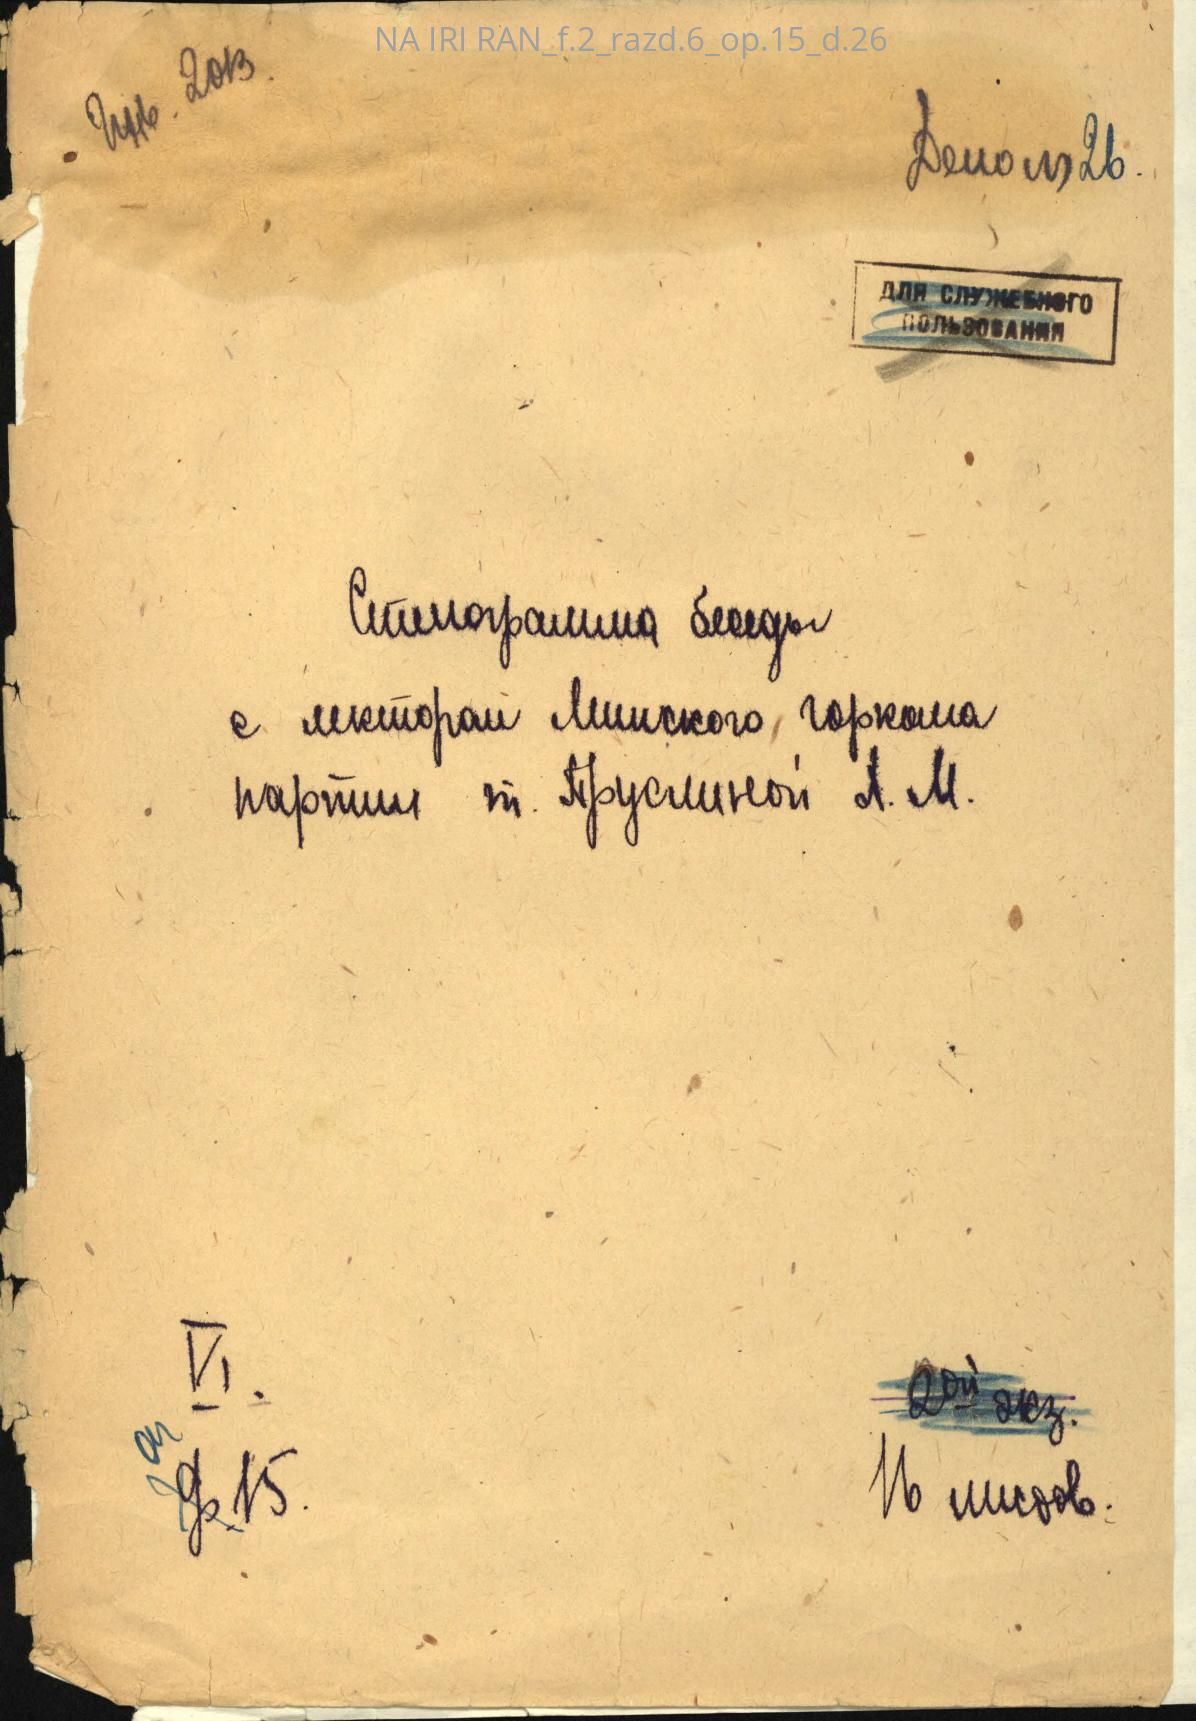 NA IRI RAN_f.2_razd.6_op.15_d.26
Инв. 2013.
Дело № 26.
ДЛЯ СЛУЖЕБНОГО
ПОЛЬЗОВАНИЯ
Стенограмма беседы
с лектором Минского горкома
партии т. Пруслиной А. М.
VI.
15.
2ой экз.
16 листов.